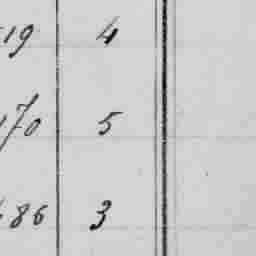 19 4
170 5
86 3